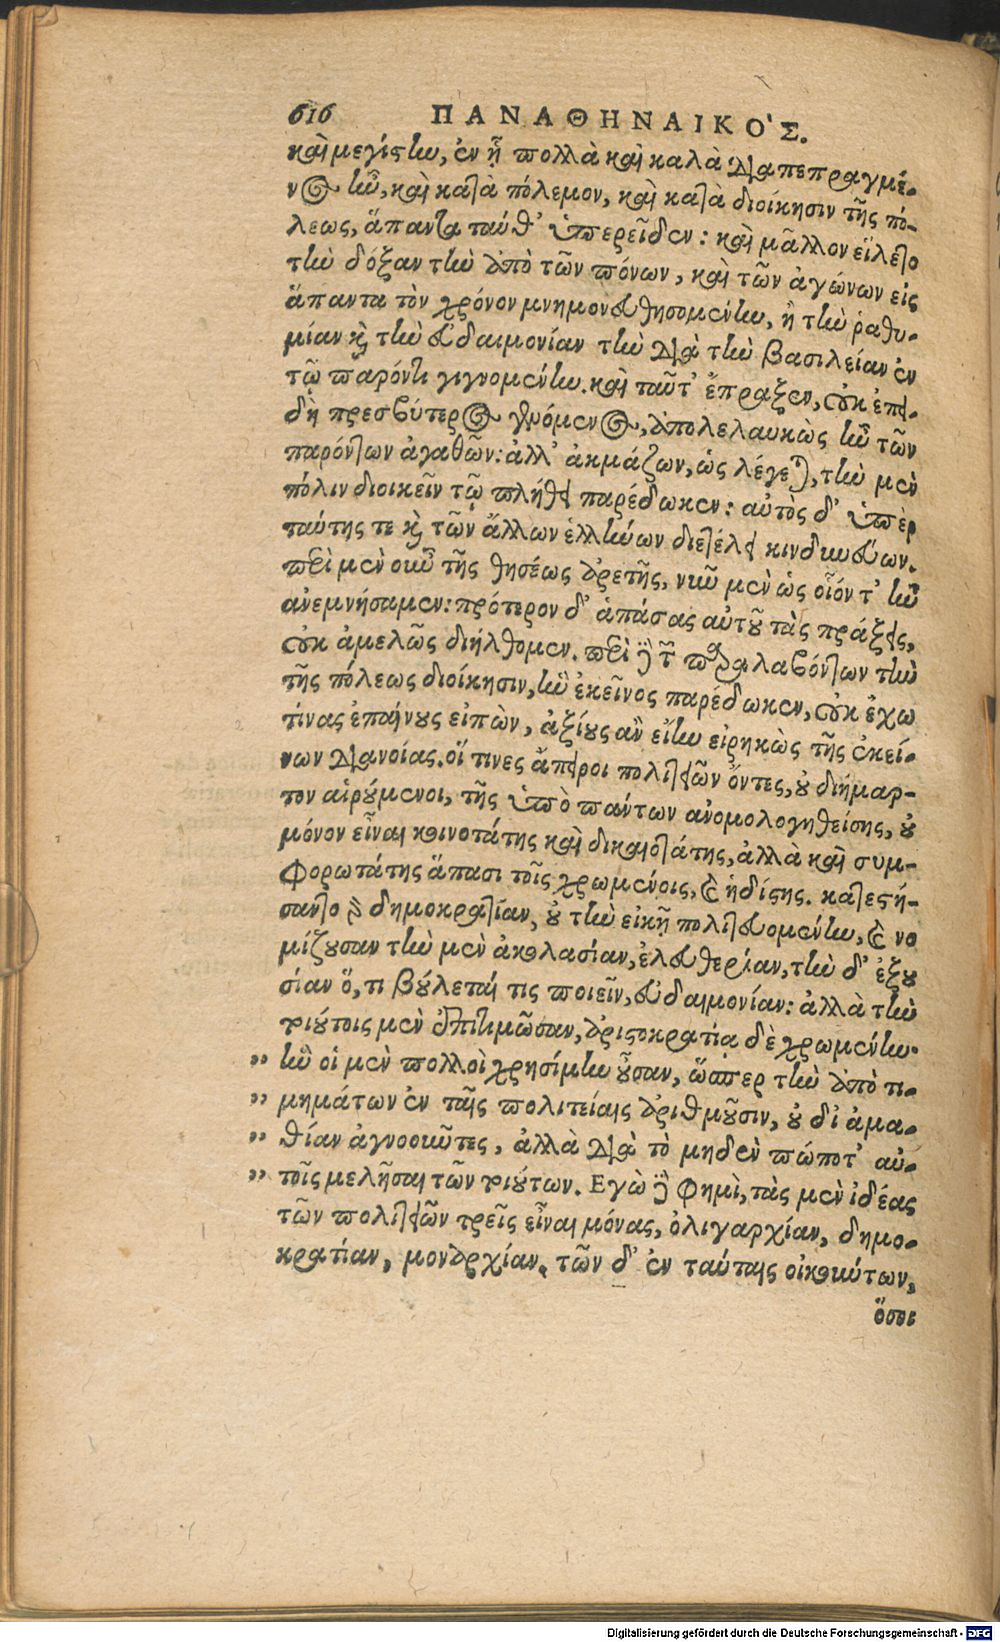 616 ΠΑΝΑΘΗΝΑΙΚΟ'Σ.
καὶ μεγίστην, ἐν ᾗ πολλὰ καὶ καλὰ διαπεπραγμέ-
νος ἦν, καὶ κατὰ πόλεμον, καὶ κατὰ διοίκησιν τῆς πό-
λεως, ἅπαντα ταῦθ' ὑπερεῖδεν: καὶ μᾶλλον εἵλετο
τὴν δόξαν τὴν ἀπὸ τῶν πόνων, καὶ τῶν ἀγώνων εἰς
ἅπαντα τὸν χρόνον μνημονευθησομένην, ἢ τὴν ῥαθυ-
μίαν καὶ τὴν εὐδαιμονίαν τὴν διὰ τὴν βασιλείαν ἐν
τῷ παρόντι γιγνομένην. καὶ ταῦτ' ἔπραξεν, οὐκ ἐπει-
δὴ πρεσβύτερος γενόμενος, ἀπολελαυκὼς ἦν τῶν
παρόντων ἀγαθῶν: ἀλλ' ἀκμάζων, ὡς λέγεται, τὴν μὲν
πόλιν διοικεῖν τῷ πλήθει παρέδωκεν: αὐτὸς δ' ὑπὲρ
ταύτης τε καὶ τῶν ἄλλων ἑλλήνων διετέλει κινδυνεύων.
περὶ μὲν οὖν τῆς θησέως ἀρετῆς, νῦν μὲν ὡς οἷόν τ' ἦν
ἀνεμνήσαμεν: πρότερον δ' ἁπάσας αὐτοῦ τὰς πράξεις,
οὐκ ἀμελῶς διήλθομεν. περὶ δὲ τῶν παραλαβόντων τὴν
τῆς πόλεως διοίκησιν, ἣν ἐκεῖνος παρέδωκεν, οὐκ ἔχω
τίνας ἐπαίνους εἰπὼν, ἀξίους ἂν εἴην εἰρηκὼς τῆς ἐκεί-
νων διανοίας. οἵ τινες ἄπειροι πολιτειῶν ὄντες, οὐ διήμαρ-
τον αἱρούμενοι, τῆς ὑπὸ πάντων ἀνομολογηθείσης, οὐ
μόνον εἶναι κοινοτάτης καὶ δικαιοτάτης, ἀλλὰ καὶ συμ-
φορωτάτης ἅπασι τοῖς χρωμένοις, καὶ ἡδίστης. κατεστή-
σαντο γὰρ δημοκρατίαν, οὐ τὴν εἰκῆ πολιτευομένην, καὶ νο
μίζουσαν τὴν μὲν ἀκολασίαν, ἐλευθερίαν, τὴν δ' ἐξου
σίαν ὅ, τι βούλεταί τις ποιεῖν, εὐδαιμονίαν: ἀλλὰ τὴν
τοιούτοις μὲν ἐπιτιμῶσαν, ἀριστοκρατίᾳ δὲ χρωμένην.
" ἣν οἱ μὲν πολλοὶ χρησίμην οὖσαν, ὥσπερ τὴν ἀπὸ τι-
" μημάτων ἐν ταῖς πολιτείαις ἀριθμοῦσιν, οὐ δι' ἀμα-
" θίαν ἀγνοοῦντες, ἀλλὰ διὰ τὸ μηδὲν πώποτ' αὐ-
" τοῖς μελῆσαι τῶν τοιούτων. Εγὼ δὲ φημὶ, τὰς μὲν ἰδέας
τῶν πολιτειῶν τρεῖς εἶναι μόνας, ὀλιγαρχίαν, δημο-
κρατίαν, μοναρχίαν. τῶν δ' ἐν ταύταις οἰκούντων,
ὅσοι
Digitalisierung gefördert durch die Deutsche Forschungsgemeinschaft - DFG